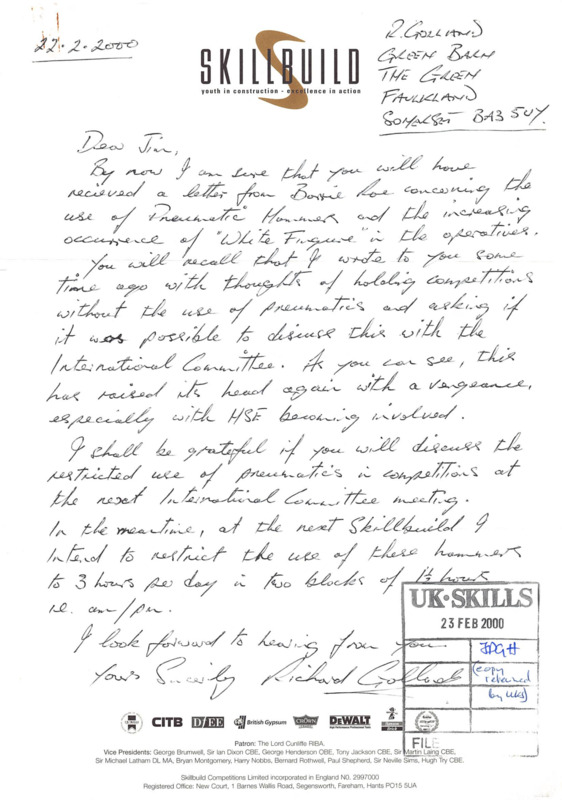 22.2.2000
SKILLBUILD
youth in construction - excellence in action
R. GOLLAND
GREEN BARN
THE GREEN
FAULKLAND
SOMERSET BA3 5UY.
Dear Jim,
By now I am sure that you will have
recieved a letter from Barrie concerning the
use of Pneumatic Hammers and the increasing
occurrence of "White Fingure" in the operatives.
You will recall that I wrote to you some
time ago with thoughts of holding competitions
without the use of pneumatics and asking if
it was possible to discuss this with the
International Committee. As you can see, this
has raised its head again with a vengeance,
especially with HSE becoming involved.
I shall be grateful if you will discuss the
restricted use of pneumatics in competitions at
the next International Committee meeting.
In the meantime, at the next Skillbuild I
intend to restrict the use of these hammers
to 3 hours per day in two blocks of 1½ hours
ie. am/pm.
I look forward to hearing from you
Yours Sincerely Richard Golland
UK·SKILLS
23 FEB 2000
JPGH
(copy
retained
by UKS)
FILE
CITB DfEE British Gypsum CROWN DEWALT
Patron: The Lord Cunliffe RIBA.
Vice Presidents: George Brumwell, Sir Ian Dixon CBE, George Henderson OBE, Tony Jackson CBE, Sir Martin Laing CBE,
Sir Michael Latham DL MA, Bryan Montgomery, Harry Nobbs, Bernard Rothwell, Paul Shepherd, Sir Neville Sims, Hugh Try CBE.
Skillbuild Competitions Limited incorporated in England N0. 2997000
Registered Office: New Court, 1 Barnes Wallis Road, Segensworth, Fareham, Hants PO15 5UA